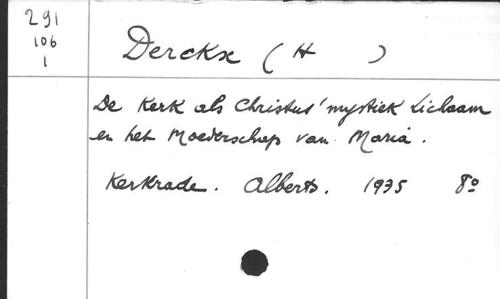 291
106
1
Derckx ( H )
De Kerk als Christus' mystiek Lichaam
en het Moederschap van Maria.
Kerkrade. Alberts. 1935 8º